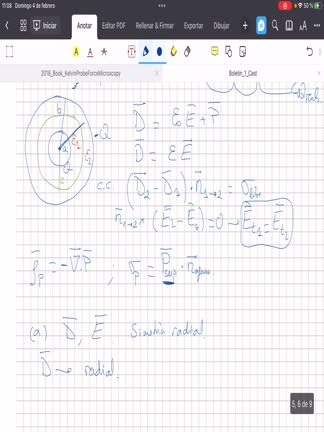 11:08 Domingo 4 de febrero
50 %
Iniciar Anotar Editar PDF Rellenar & Firmar Cortar Dibujar
2018_Book_KelvinProbeForceMicroscopy Boletin_1_Cast
b -Q
ε₁ ε₂
a
Q
c
D⃗ = ε₀ E⃗ + P⃗
D⃗ = ε E⃗
c.c. (D⃗₂ - D⃗₁) · n⃗₁→₂ = σ
n⃗₁→₂ × (E⃗₂ - E⃗₁) = 0 → E⃗t₁ = E⃗t₂
ρₚ = -∇⃗·P⃗ ; σₚ = P⃗sup · n⃗
(a) D⃗, E⃗ Simetría radial.
D⃗ → radial.
5, 6 de 9